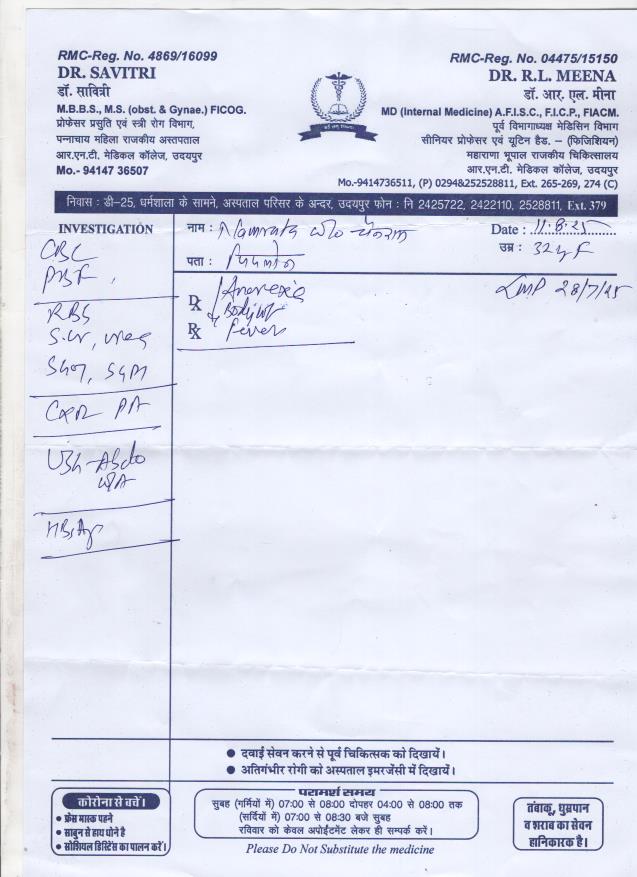 RMC-Reg. No. 4869/16099
DR. SAVITRI
डॉ. सावित्री
M.B.B.S., M.S. (obst. & Gynae.) FICOG.
प्रोफेसर प्रसुति एवं स्त्री रोग विभाग,
पन्नाधाय महिला राजकीय अस्तपताल
आर.एन.टी. मेडिकल कॉलेज, उदयपुर
Mo.- 94147 36507
RMC-Reg. No. 04475/15150
DR. R.L. MEENA
डॉ. आर. एल. मीना
MD (Internal Medicine) A.F.I.S.C., F.I.C.P., FIACM.
पूर्व विभागाध्यक्ष मेडिसिन विभाग
सीनियर प्रोफेसर एवं यूटिन हैड. – (फिजिशियन)
महाराणा भूपाल राजकीय चिकित्सालय
आर.एन.टी. मेडिकल कॉलेज, उदयपुर
Mo.-9414736511, (P) 0294&252528811, Ext. 265-269, 274 (C)
निवास : डी-25, धर्मशाला के सामने, अस्पताल परिसर के अन्दर, उदयपुर फोन : नि 2425722, 2422110, 2528811, Ext. 379
INVESTIGATION
CBC
PBF,
RBS
S.cr, urea
SGOT, SGPT
CXR PA
USG-Abdo
HBsAg
नाम : Namrata w/o
Date : 11.8.25
पता :
उम्र : 32 y F
Dx Anorexia
Fever
Rx
LMP 28/7/25
दवाई सेवन करने से पूर्व चिकित्सक को दिखायें।
अतिगंभीर रोगी को अस्पताल इमरजेंसी में दिखायें।
कोरोना से बचें।
फ्रेस मास्क पहने
साबुन से हाथ धोने है
सोशियल डिस्टिंस का पालन करें।
परामर्श समय
सुबह (गर्मियों में) 07:00 से 08:00 दोपहर 04:00 से 08:00 तक
(सर्दियों में) 07:00 से 08:30 बजे सुबह
रविवार को केवल अपोईंटमेंट लेकर ही सम्पर्क करें।
Please Do Not Substitute the medicine
तंबाकू, धुम्रपान
व शराब का सेवन
हानिकारक है।